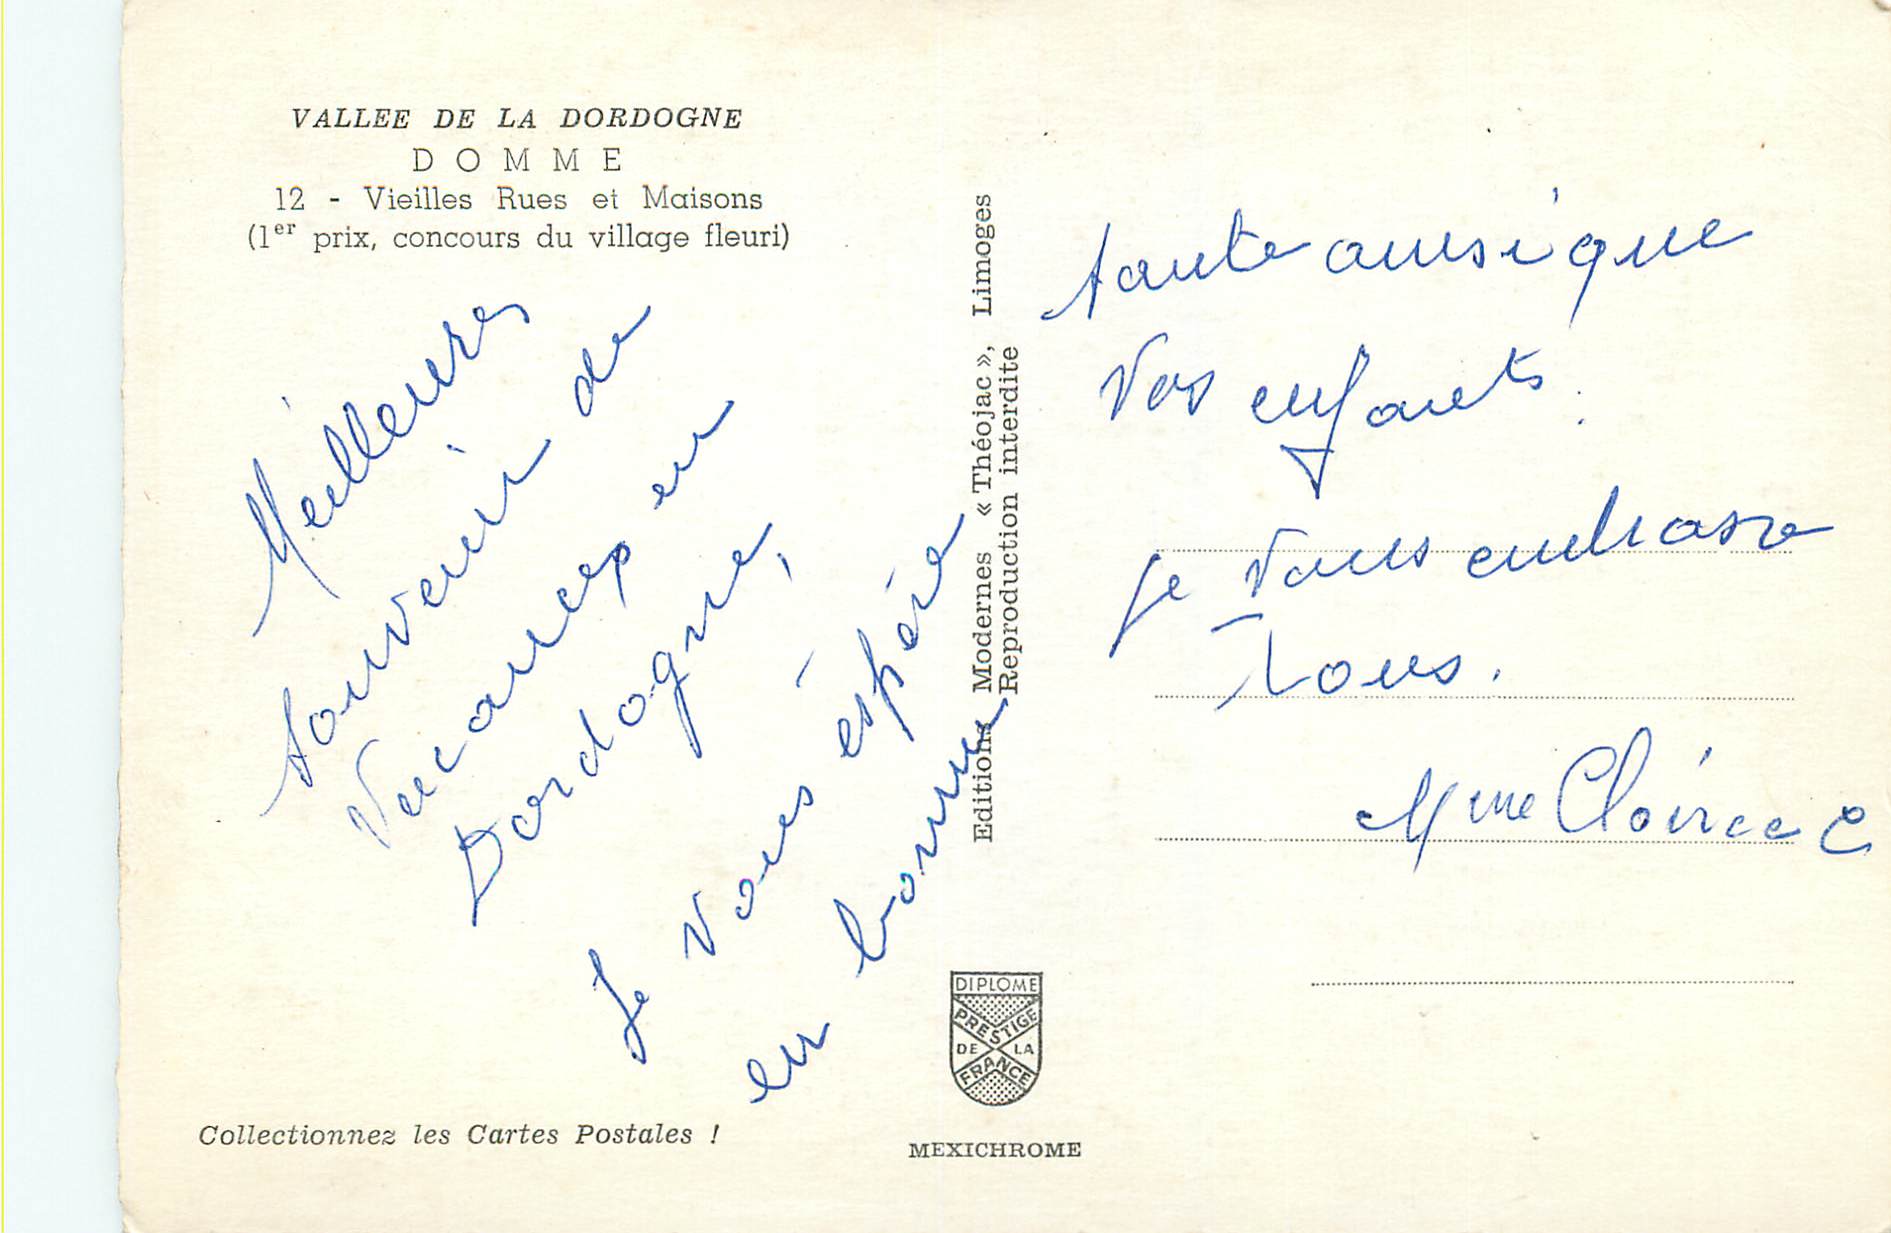 VALLEE DE LA DORDOGNE
DOMME
12 - Vieilles Rues et Maisons
(1er prix, concours du village fleuri)
Meilleures
souvenir de
Vacances en
Dordogne,
Je vous espère
en bonne
santé ainsi que
Vos enfants.
Je Vous embrasse
Tous.
Mme Clairee C
Editions Modernes « Théojac », Limoges
Reproduction interdite
DIPLOME
PRESTIGE
DE LA
FRANCE
Collectionnez les Cartes Postales !
MEXICHROME